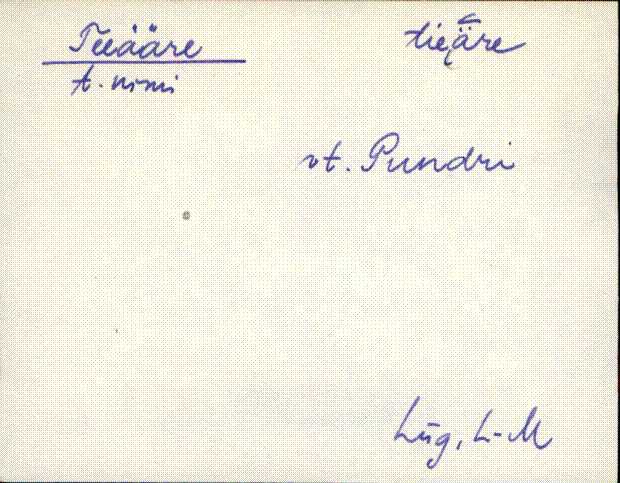 Teeääre tieǟre
t. nimi
vt. Pundri
Lüg, L-M